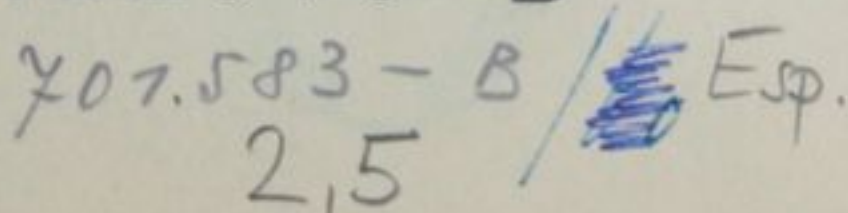 701.583 - B / Esp.
2,5